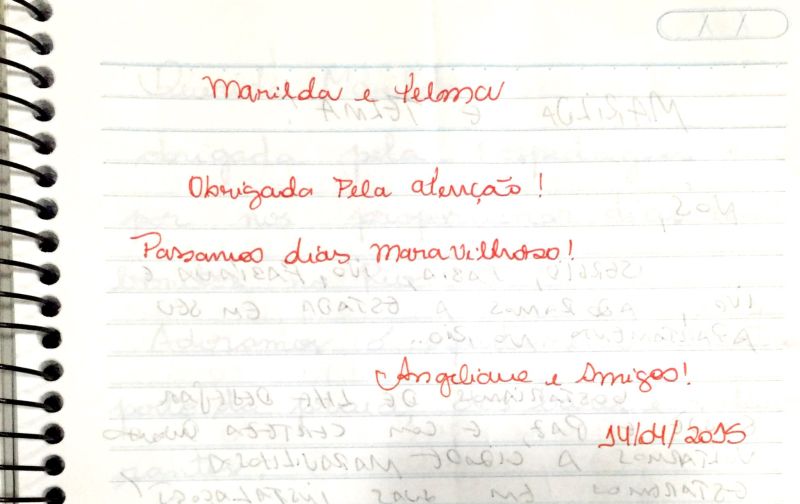 Marilda e Telma
Obrigada Pela atenção!
Passamos dias maravilhoso!
Angelique e Amigos!
14/04/2015